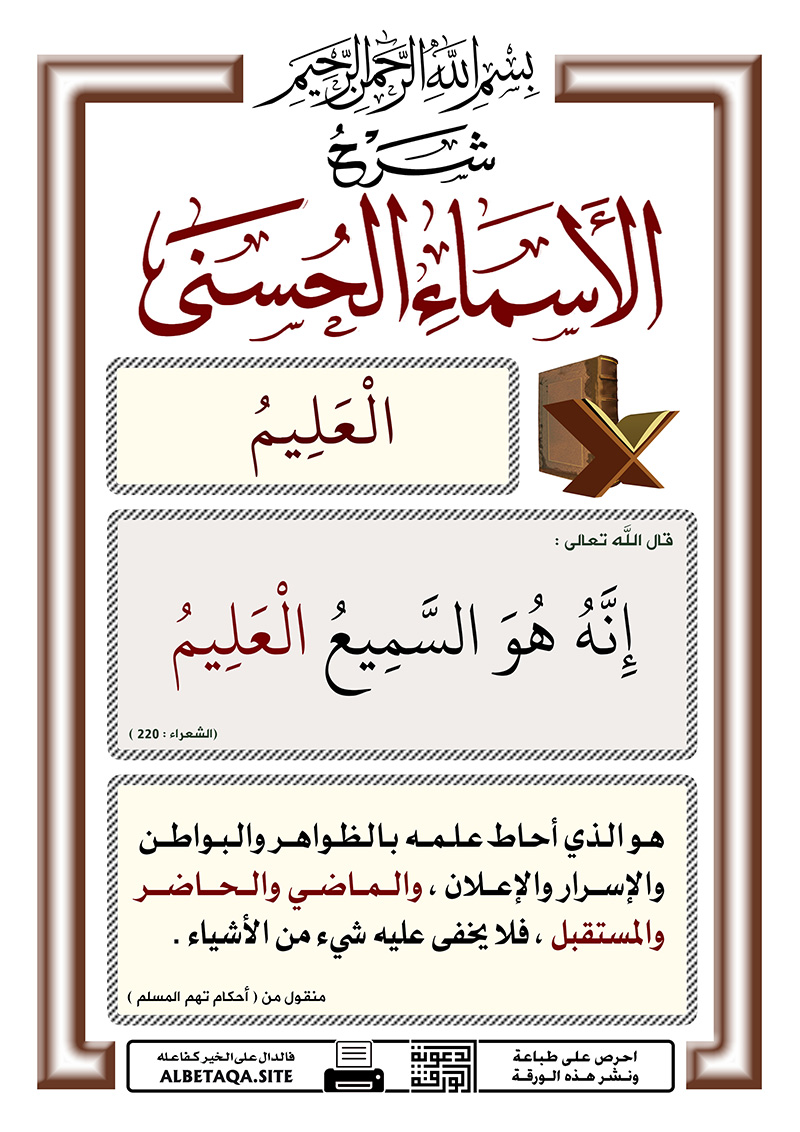 بِسْمِ اللَّهِ الرَّحْمَنِ الرَّحِيمِ
شَرْحُ
الأَسْمَاءِ الحُسْنَى
الْعَلِيمُ
قال اللَّه تعالى :
إِنَّهُ هُوَ السَّمِيعُ الْعَلِيمُ
(الشعراء : 220 )
هو الذي أحاط علمه بالظواهر والبواطن
والإسرار والإعلان ، والماضي والحاضر
والمستقبل ، فلا يخفى عليه شيء من الأشياء .
منقول من ( أحكام تهم المسلم )
احرص على طباعة
ونشر هذه الورقة
الورقة
الدعوية
فالدال على الخير كفاعله
ALBETAQA.SITE